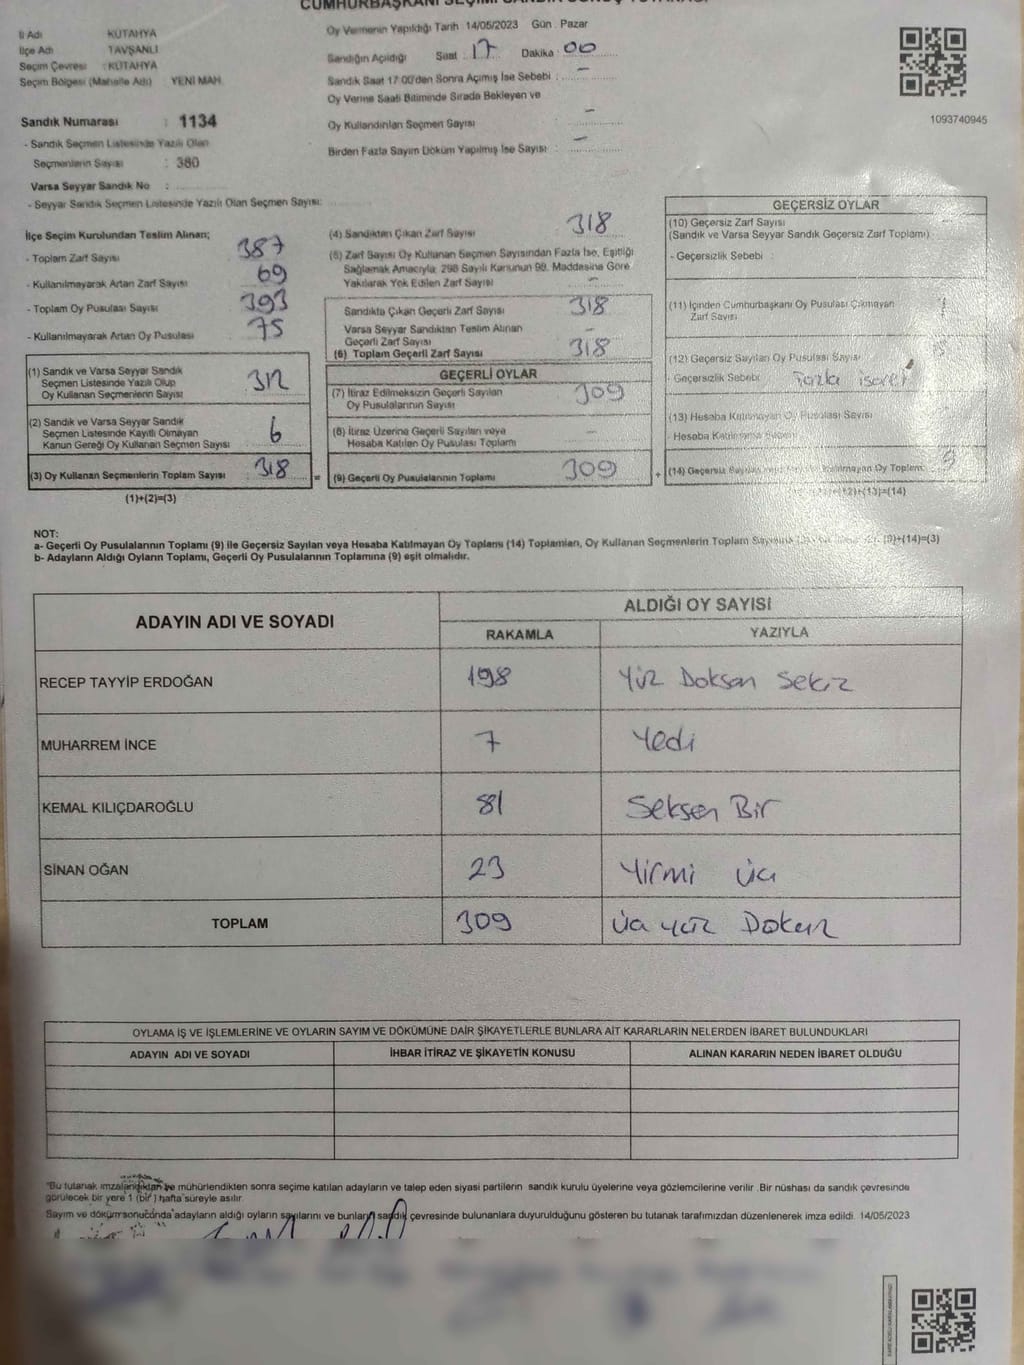 CUMHURBAŞKANI SEÇİMİ SANDIK SONUÇ TUTANAĞI
İl Adı : KÜTAHYA
İlçe Adı : TAVŞANLI
Seçim Çevresi : KÜTAHYA
Seçim Bölgesi (Mahalle Adı) : YENİ MAH.
Sandık Numarası : 1134
- Sandık Seçmen Listesinde Yazılı Olan
Seçmenlerin Sayısı : 380
Varsa Seyyar Sandık No :
- Seyyar Sandık Seçmen Listesinde Yazılı Olan Seçmen Sayısı:
Oy Vermenin Yapıldığı Tarih 14/05/2023 Gün : Pazar
Sandığın Açıldığı Saat : 17 Dakika : 00
Sandık Saat 17:00'den Sonra Açılmış İse Sebebi : –
Oy Verme Saati Bitiminde Sırada Bekleyen ve
Oy Kullandırılan Seçmen Sayısı –
Birden Fazla Sayım Döküm Yapılmış İse Sayısı : –
1093740945
İlçe Seçim Kurulundan Teslim Alınan;
- Toplam Zarf Sayısı 387
- Kullanılmayarak Artan Zarf Sayısı 69
- Toplam Oy Pusulası Sayısı 393
- Kullanılmayarak Artan Oy Pusulası 75
(1) Sandık ve Varsa Seyyar Sandık
Seçmen Listesinde Yazılı Olup
Oy Kullanan Seçmenlerin Sayısı 312
(2) Sandık ve Varsa Seyyar Sandık
Seçmen Listesinde Kayıtlı Olmayan
Kanun Gereği Oy Kullanan Seçmen Sayısı 6
(3) Oy Kullanan Seçmenlerin Toplam Sayısı 318
(1)+(2)=(3)
(4) Sandıktan Çıkan Zarf Sayısı 318
(5) Zarf Sayısı Oy Kullanan Seçmen Sayısından Fazla İse, Eşitliği
Sağlamak Amacıyla; 298 Sayılı Kanunun 98. Maddesine Göre
Yakılarak Yok Edilen Zarf Sayısı –
Sandıkta Çıkan Geçerli Zarf Sayısı 318
Varsa Seyyar Sandıktan Teslim Alınan
Geçerli Zarf Sayısı –
(6) Toplam Geçerli Zarf Sayısı 318
GEÇERLİ OYLAR
(7) İtiraz Edilmeksizin Geçerli Sayılan
Oy Pusulalarının Sayısı 309
(8) İtiraz Üzerine Geçerli Sayılan veya
Hesaba Katılan Oy Pusulası Toplamı –
= (9) Geçerli Oy Pusulalarının Toplamı 309
GEÇERSİZ OYLAR
(10) Geçersiz Zarf Sayısı
(Sandık ve Varsa Seyyar Sandık Geçersiz Zarf Toplamı)
- Geçersizlik Sebebi :
(11) İçinden Cumhurbaşkanı Oy Pusulası Çıkmayan
Zarf Sayısı
(12) Geçersiz Sayılan Oy Pusulası Sayısı
- Geçersizlik Sebebi : Fazla işaret
(13) Hesaba Katılmayan Oy Pusulası Sayısı
Hesaba Katılmama Sebebi
+ (14) Geçersiz Sayılan veya Hesaba Katılmayan Oy Toplamı 9
(12)+(13)=(14)
NOT:
a- Geçerli Oy Pusulalarının Toplamı (9) ile Geçersiz Sayılan veya Hesaba Katılmayan Oy Toplamı (14) Toplamları, Oy Kullanan Seçmenlerin Toplam Sayısına (9)+(14)=(3)
b- Adayların Aldığı Oyların Toplamı, Geçerli Oy Pusulalarının Toplamına (9) eşit olmalıdır.
ADAYIN ADI VE SOYADI ALDIĞI OY SAYISI
RAKAMLA YAZIYLA
RECEP TAYYİP ERDOĞAN 198 Yüz Doksan Sekiz
MUHARREM İNCE 7 Yedi
KEMAL KILIÇDAROĞLU 81 Seksen Bir
SİNAN OĞAN 23 Yirmi Üç
TOPLAM 309 Üç yüz Dokuz
OYLAMA İŞ VE İŞLEMLERİNE VE OYLARIN SAYIM VE DÖKÜMÜNE DAİR ŞİKAYETLERLE BUNLARA AİT KARARLARIN NELERDEN İBARET BULUNDUKLARI
ADAYIN ADI VE SOYADI İHBAR İTİRAZ VE ŞİKAYETİN KONUSU ALINAN KARARIN NEDEN İBARET OLDUĞU
*Bu tutanak imzalandıktan ve mühürlendikten sonra seçime katılan adayların ve talep eden siyasi partilerin sandık kurulu üyelerine veya gözlemcilerine verilir. Bir nüshası da sandık çevresinde
görülecek bir yere 1 (bir) hafta süreyle asılır.
Sayım ve döküm sonucunda adayların aldığı oyların sayılarını ve bunların sandık çevresinde bulunanlara duyurulduğunu gösteren bu tutanak tarafımızdan düzenlenerek imza edildi. 14/05/2023